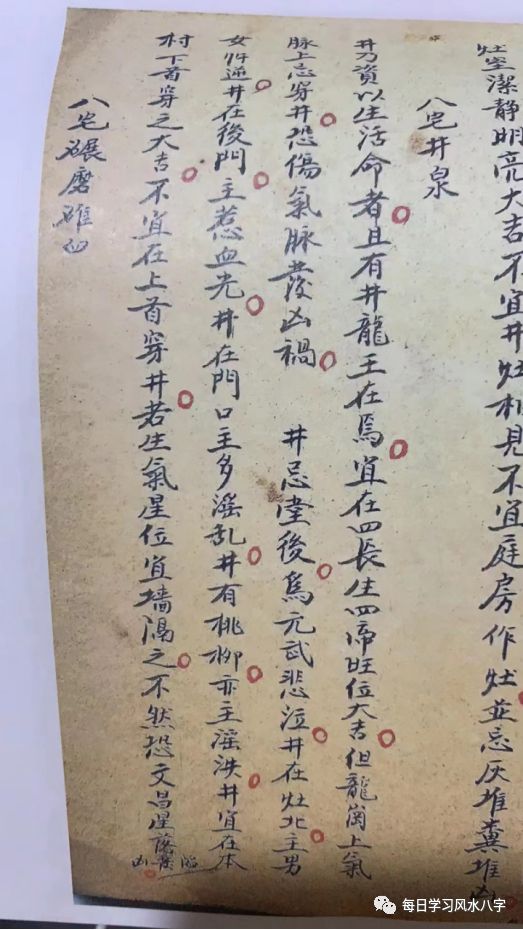 灶宜潔静明亮大吉不宜井灶相見不宜庭房作灶並忌灰堆糞堆凶
八宅井泉
井乃資以生活命者且有井龍王在焉宜在四長生四帝旺位大吉但龍崗上氣
脉上忌穿井恐傷氣脉發凶禍 井忌堂後為元武悲泣井在灶北主男
女忤逆井在後門主惹血光井在門口主多淫乱井有桃柳亦主淫泆井宜在本
村下首穿之大吉不宜在上首穿井若生氣星位宜墻隔之不然恐文昌星落
凶
八宅碾磨碓
每日学习风水八字